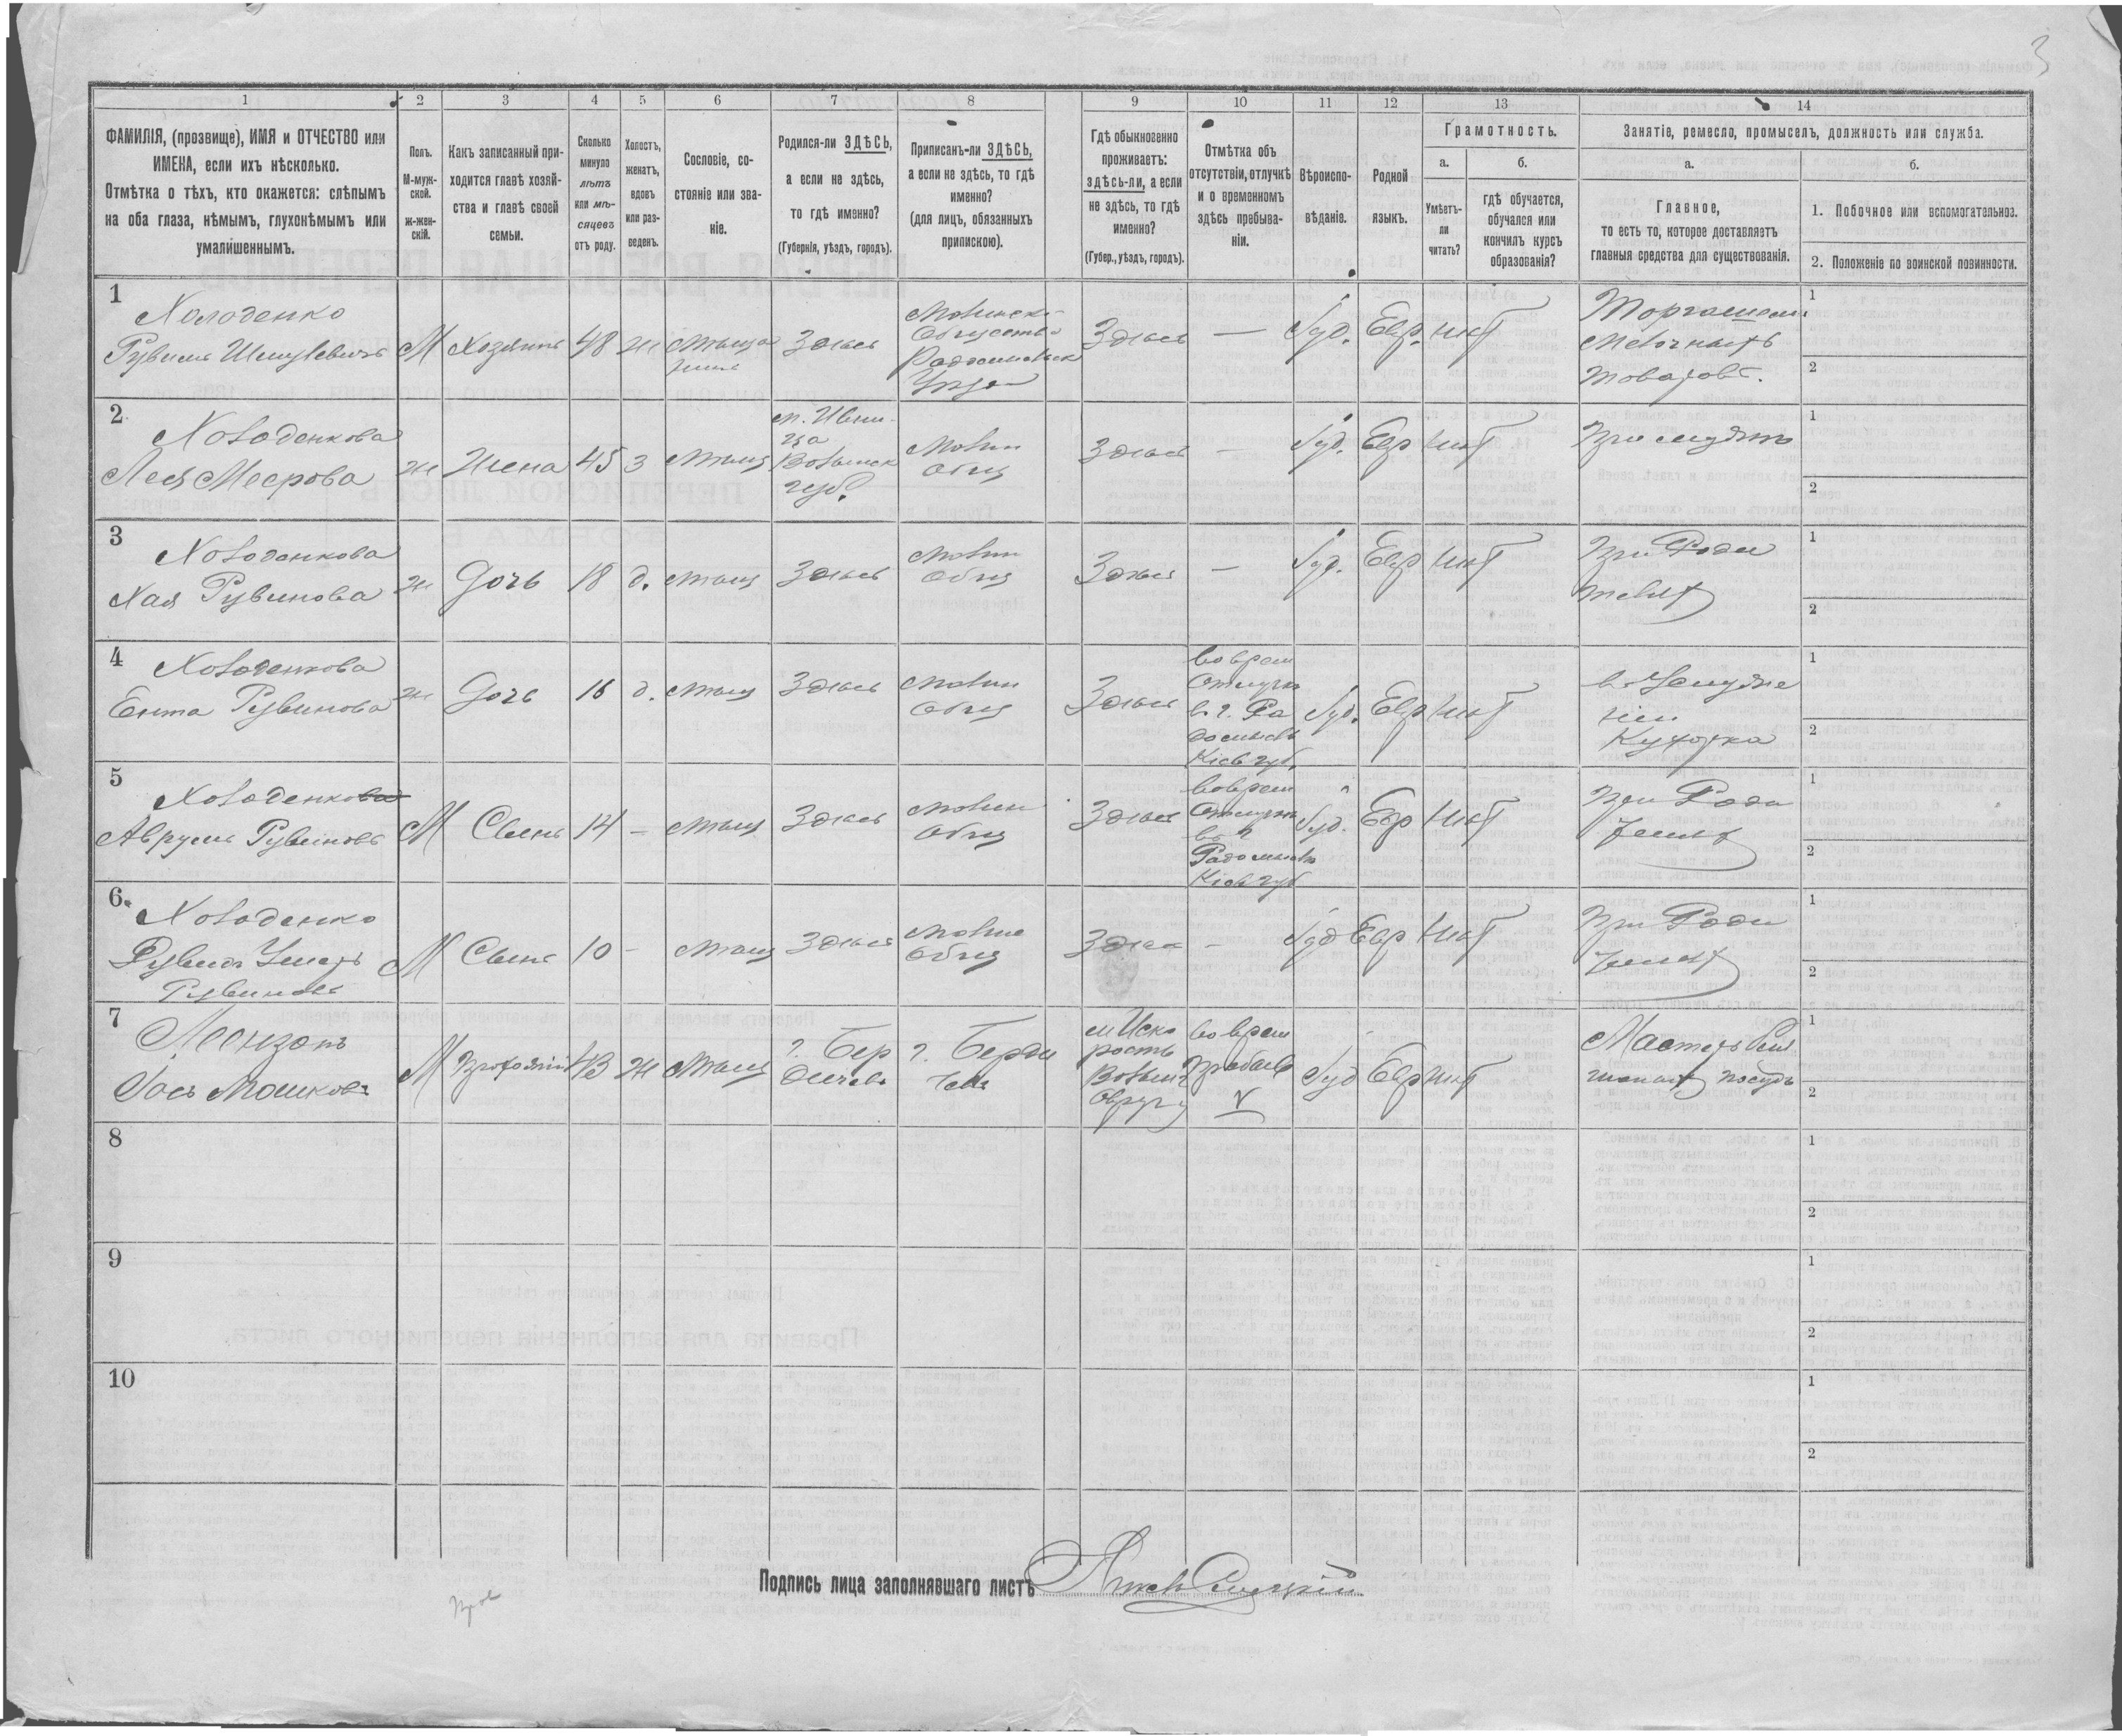 3
1 2 3 4 5 6 7 8 9 10 11 12 13 14
ФАМИЛІЯ, (прозвище), ИМЯ и ОТЧЕСТВО или
ИМЕНА, если ихъ нѣсколько.
Отмѣтка о тѣхъ, кто окажется: слѣпымъ
на оба глаза, нѣмымъ, глухонѣмымъ или
умалишеннымъ.
Полъ.
М-муж-
ской.
ж-жен-
скій.
Какъ записанный при-
ходится главѣ хозяй-
ства и главѣ своей
семьи.
Сколько
минуло
лѣтъ
или мѣ-
сяцевъ
отъ роду.
Холостъ,
женатъ,
вдовъ
или раз-
веденъ.
Сословіе, со-
стояніе или зва-
ніе.
Родился-ли ЗДѢСЬ,
а если не здѣсь,
то гдѣ именно?
(Губернія, уѣздъ, городъ).
Приписанъ-ли ЗДѢСЬ,
а если не здѣсь, то гдѣ
именно?
(для лицъ, обязанныхъ
припискою).
Гдѣ обыкновенно
проживаетъ:
здѣсь-ли, а если
не здѣсь, то гдѣ
именно?
(Губер., уѣздъ, городъ).
Отмѣтка объ
отсутствіи, отлучкѣ
и о временномъ
здѣсь пребыва-
ніи.
Вѣроиспо-
вѣданіе.
Родной
языкъ.
Грамотность.
а.
Умѣетъ-
ли
читать?
б.
гдѣ обучается,
обучался или
кончилъ курсъ
образованія?
Занятіе, ремесло, промыселъ, должность или служба.
а.
Главное,
то есть то, которое доставляетъ
главныя средства для существованія.
б.
1. Побочное или вспомогательное.
2. Положеніе по воинской повинности.
1
Холоденко
Рувинъ Шмулевичъ
М Хозяинъ 48 ж мѣща
нинъ
Здѣсь
Общество
Радомысльск
Уѣзда
Здѣсь — Іуд. Евр. нѣт
Торговля
мелочнымъ
товаромъ.
1
2
2
Холоденкова
Лея Меерова
ж Жена 45 з мѣщ
м. Ивни-
ца
Волынск
губ.
Малин
Общ
Здѣсь — Іуд. Евр нѣт
При мужѣ
1
2
3
Холоденкова
Хая Рувинова
ж Дочь 18 д. мѣщ Здѣсь
Малин
Общ
Здѣсь — Іуд. Евр нѣт
При Роди
телях
1
2
4
Холоденкова
Ента Рувинова
ж Дочь 16 д. мѣщ Здѣсь
Малин
Общ
Здѣсь
во врем
Отлучкѣ
в г. Ра
домыслѣ
Кіев губ.
Іуд. Евр нѣт
в Услуже
ніи
Кухарка
1
2
5
Холоденко
Аврумъ Рувиновъ
М Сынъ 14 — мѣщ Здѣсь
Малин
Общ
Здѣсь
во врем
Отлучкѣ
в г
Радомыслѣ
Кіев губ
Іуд. Евр нѣт
При Роди
1
2
6
Холоденко
Рувиновъ
М Сынъ 10 — мѣщ Здѣсь
Общ
Здѣсь — Іуд Евр нѣт
При Роди
1
2
7
Іось Мошковъ
М 43 ж мѣщ
г. Бер
дичев
г. Берди
чев
м Иско
рость
Волынс
Овруч у
во врем
пребыв
Іуд Евр нѣт
Мастеръ
посуды
1
2
8
1
2
9
1
2
10
1
2
Подпись лица заполнявшаго листъ